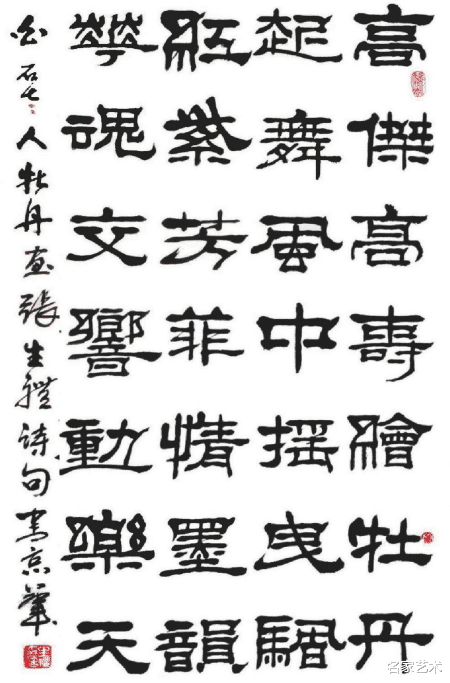 高傑高壽繪牡丹
起舞風中搖曳
紅紫芳菲情墨韻
華魂交響動樂天
白石老人牡丹畫張生禮詩句寫京華
名家艺术